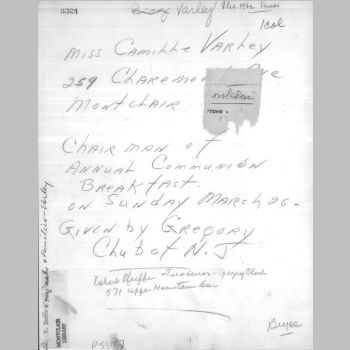 5324
Varley The Mtc Times
1 col
Miss Camille Varley
259 Claremont Ave
Montclair
Chairman of
Annual Communion
Breakfast.
on Sunday March 26-
Given by Gregory
Club of N.J
Robert Pfeiffer Treasurer - Gregory Club
571 Upper Mountain Ave
Bryce
MONTCLAIR
LIBRARY